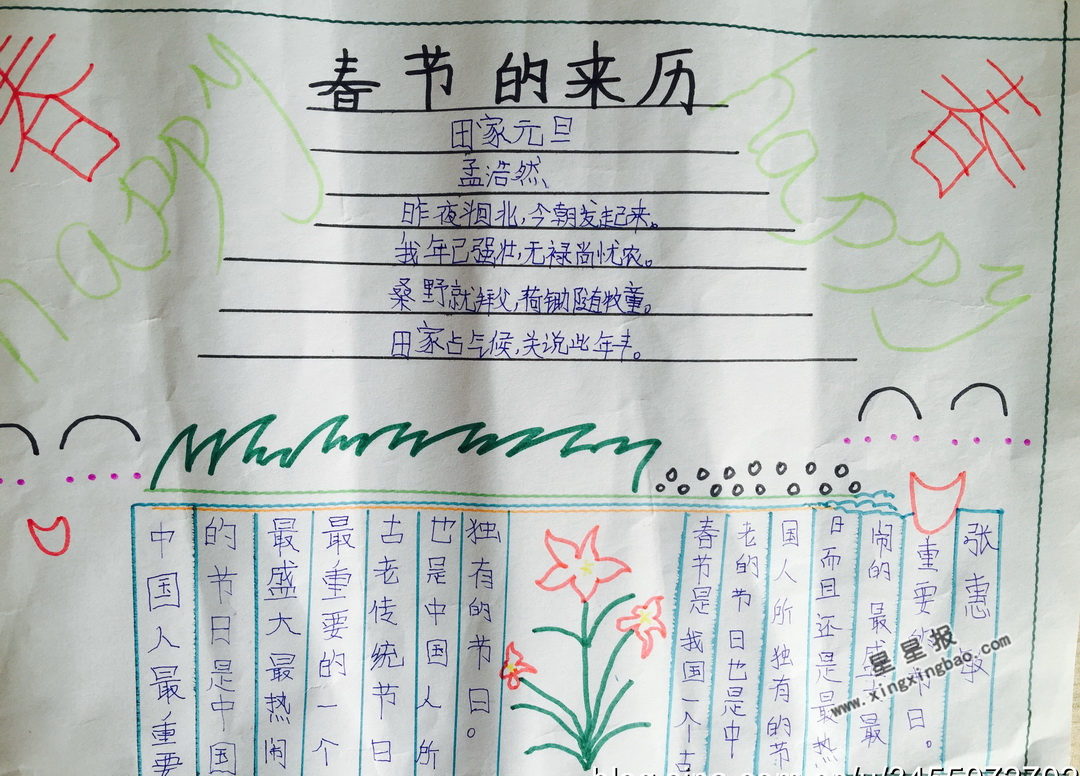 春节的来历
春
春
happy
happy
田家元旦
孟浩然
昨夜斗回北,今朝发起来。
我年已强壮,无禄尚忧农。
桑野就拜父,荷锄随牧童。
田家占气候,共说此年丰。
中国人最重要
的节日是中国
最盛大最热闹
最重要的一个
古老传统节日
也是中国人所
独有的节日。
春节是我国一个古
老的节日也是中
国人所独有的节
日而且还是最热
闹的最盛最
重要的节日。
张惠
星星报
www.xingxingbao.com